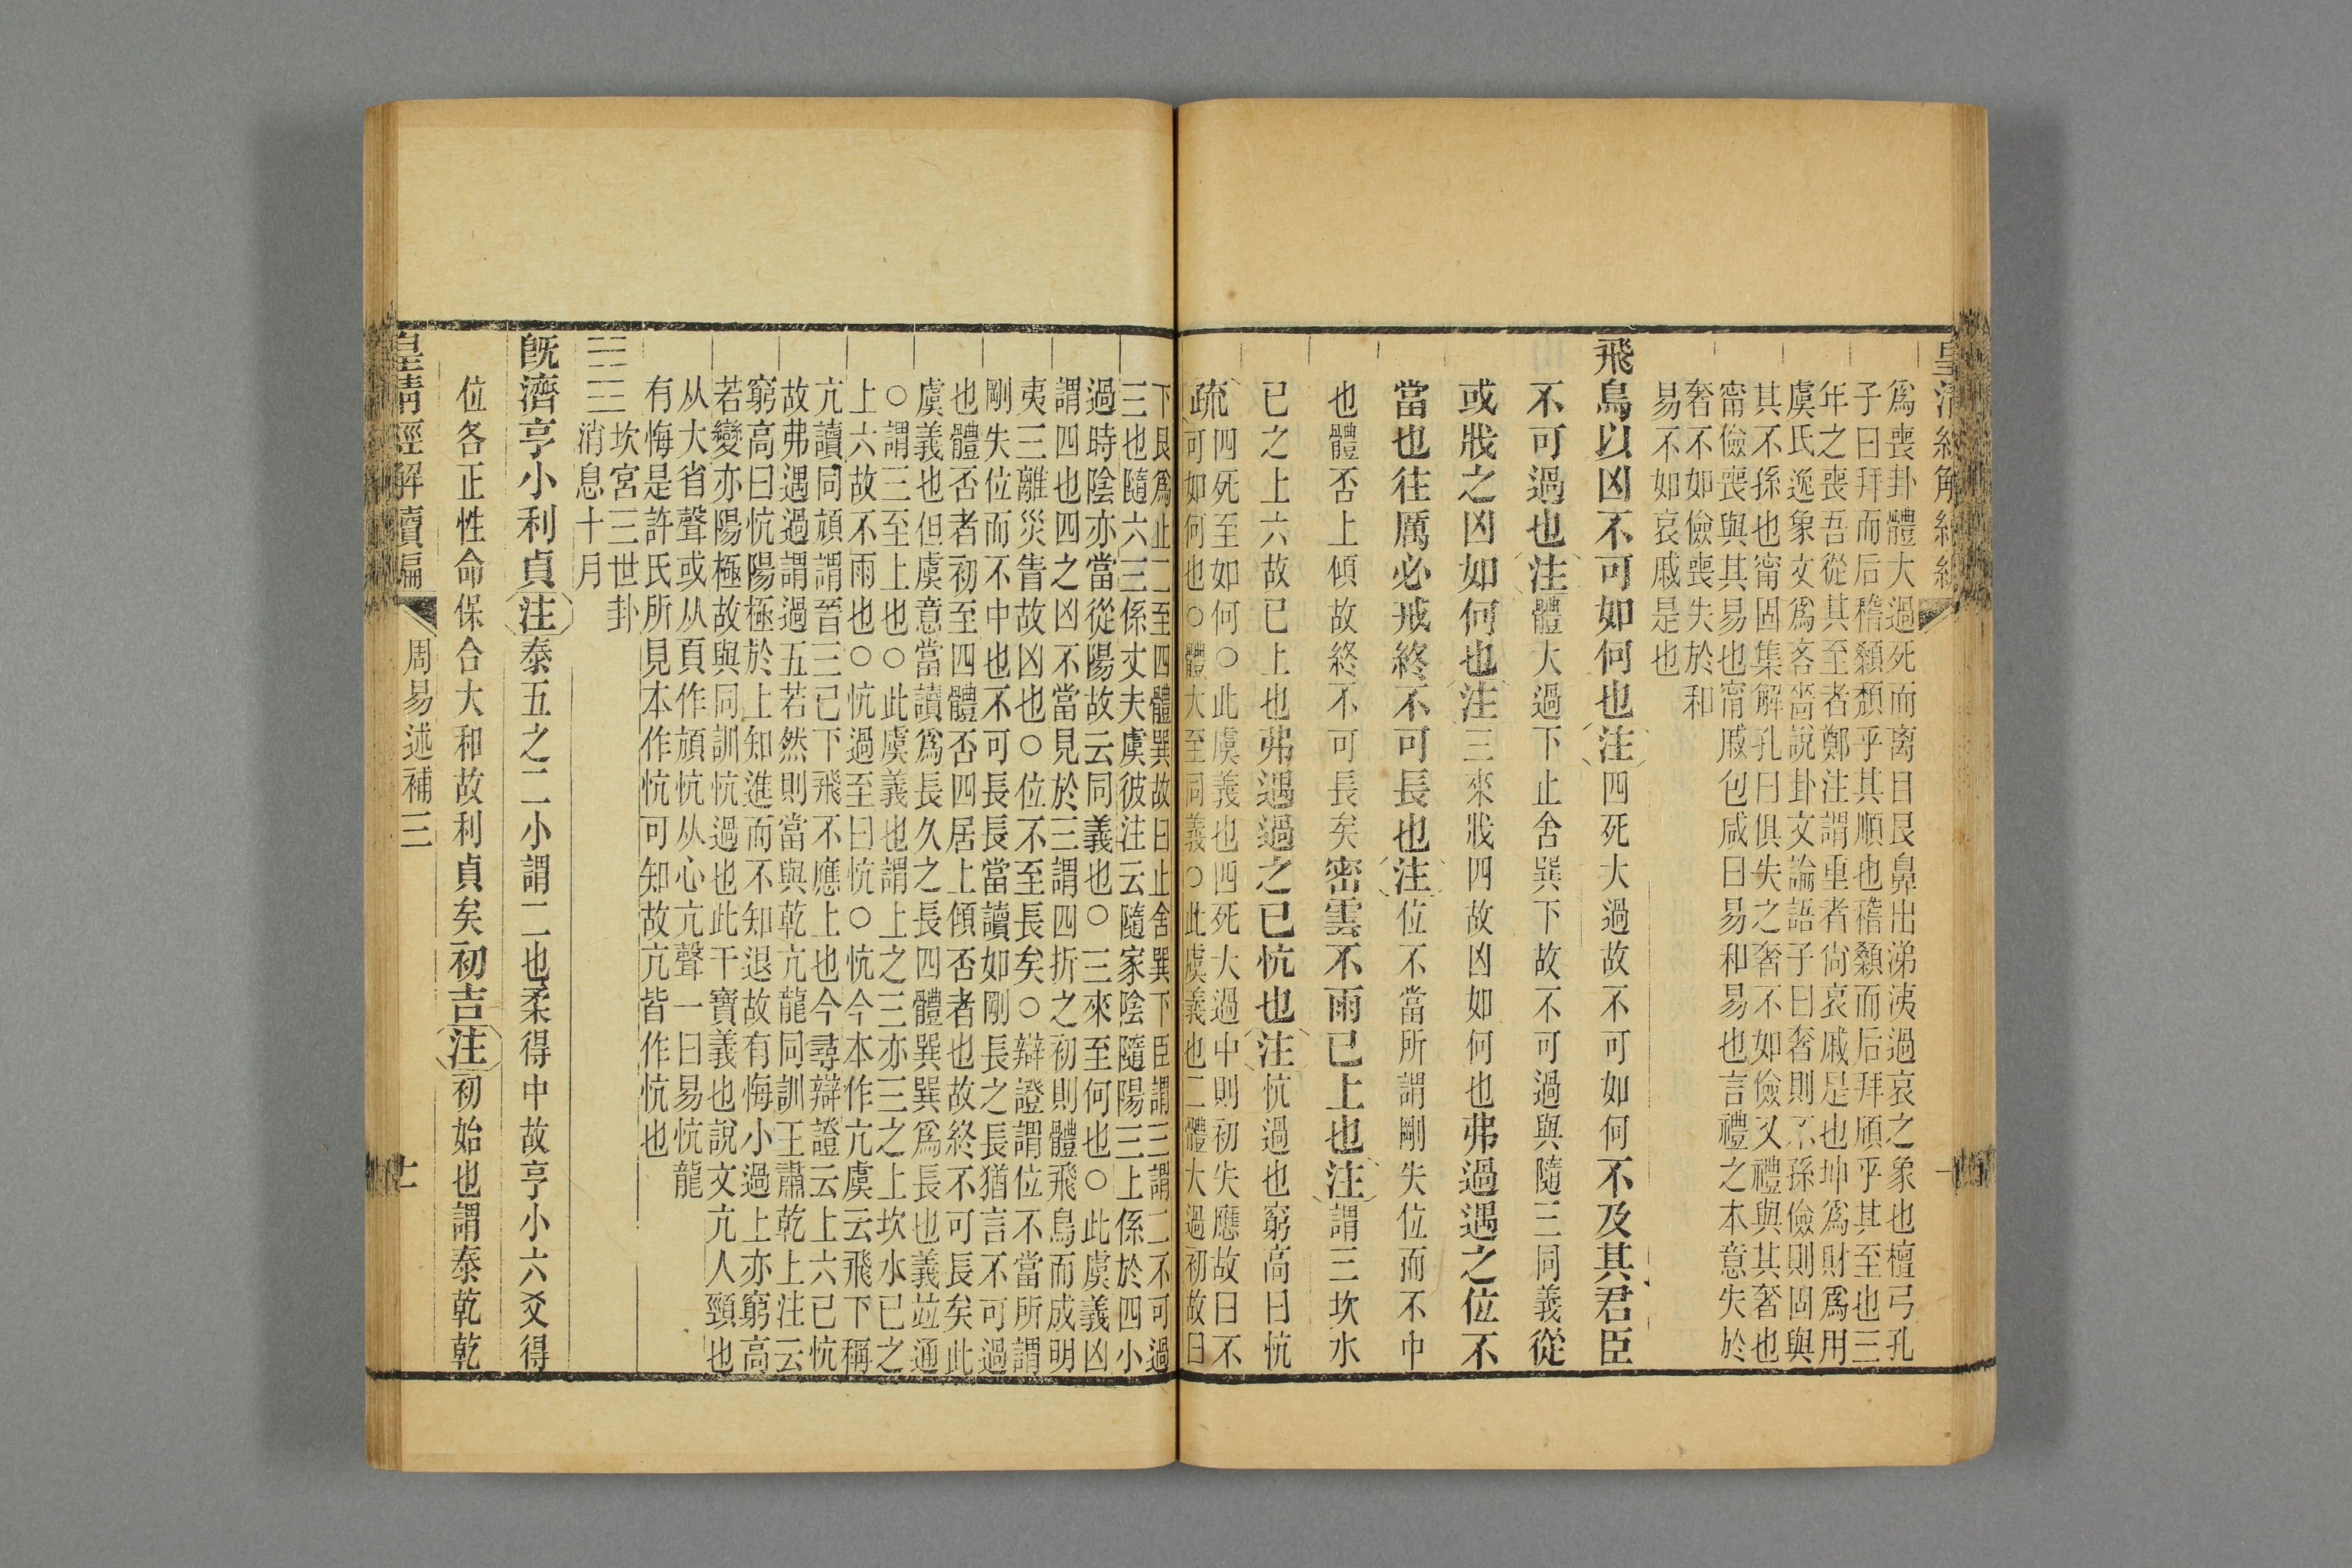 皇清經解續編
爲喪卦體大過死而离目艮鼻出涕洟過哀之象也檀弓孔
子曰拜而后稽顙頽乎其順也稽顙而后拜頎乎其至也三
年之喪吾從其至者鄭注謂重者尙哀戚是也坤爲財爲用
虞氏逸象文爲吝嗇說卦文論語子曰奢則不孫儉則固與
其不孫也甯固集解孔曰俱失之奢不如儉又禮與其奢也
甯儉喪與其易也甯戚包咸曰易和易也言禮之本意失於
奢不如儉喪失於和
易不如哀戚是也
飛鳥以凶不可如何也注四死大過故不可如何不及其君臣
不可過也注體大過下止舍巽下故不可過與隨三同義從
或戕之凶如何也注三來戕四故凶如何也弗過遇之位不
當也往厲必戒終不可長也注位不當所謂剛失位而不中
也體否上傾故終不可長矣密雲不雨已上也注謂三坎水
已之上六故已上也弗遇過之已忼也注忼過也窮高曰忼
疏四死至如何○此虞義也四死大過中則初失應故曰不
可如何也○體大至同義○此虞義也二體大過初故曰
下艮爲止二至四體巽故曰止舍巽下臣謂三謂二不可過
三也隨六三係丈夫虞彼注云隨家陰隨陽三上係於四小
過時陰亦當從陽故云同義也○三來至何也○此虞義凶
謂四也四之凶不當見於三謂四折之初則體飛鳥而成明
夷三離災眚故凶也○位不至長矣○辯證謂位不當所謂
剛失位而不中也不可長長當讀如剛長之長猶言不可過
也體否者初至四體否四居上傾否者也故終不可長矣此
虞義也但虞意當讀爲長久之長四體巽巽爲長也義竝通
○謂三至上也○此虞義也謂上之三亦三之上坎水已之
上六故不雨也○忼過至曰忼○忼今本作亢虞云飛下稱
亢讀同頏謂晉三已下飛不應上也今尋辯證云上六已忼
故弗遇過謂過五若然則當與乾亢龍同訓王肅乾上注云
窮高曰忼陽極於上知進而不知退故有悔小過上亦窮高
若變亦陽極故與同訓忼過也此干寶義也說文亢人頸也
从大省聲或从頁作頏忼从心亢聲一曰易忼龍
有悔是許氏所見本作忼可知故亢皆作忼也
坎宮三世卦
消息十月
旣濟亨小利貞注泰五之二小謂二也柔得中故亨小六爻得
位各正性命保合大和故利貞矣初吉注初始也謂泰乾乾
皇淸經解續編 周易述補三